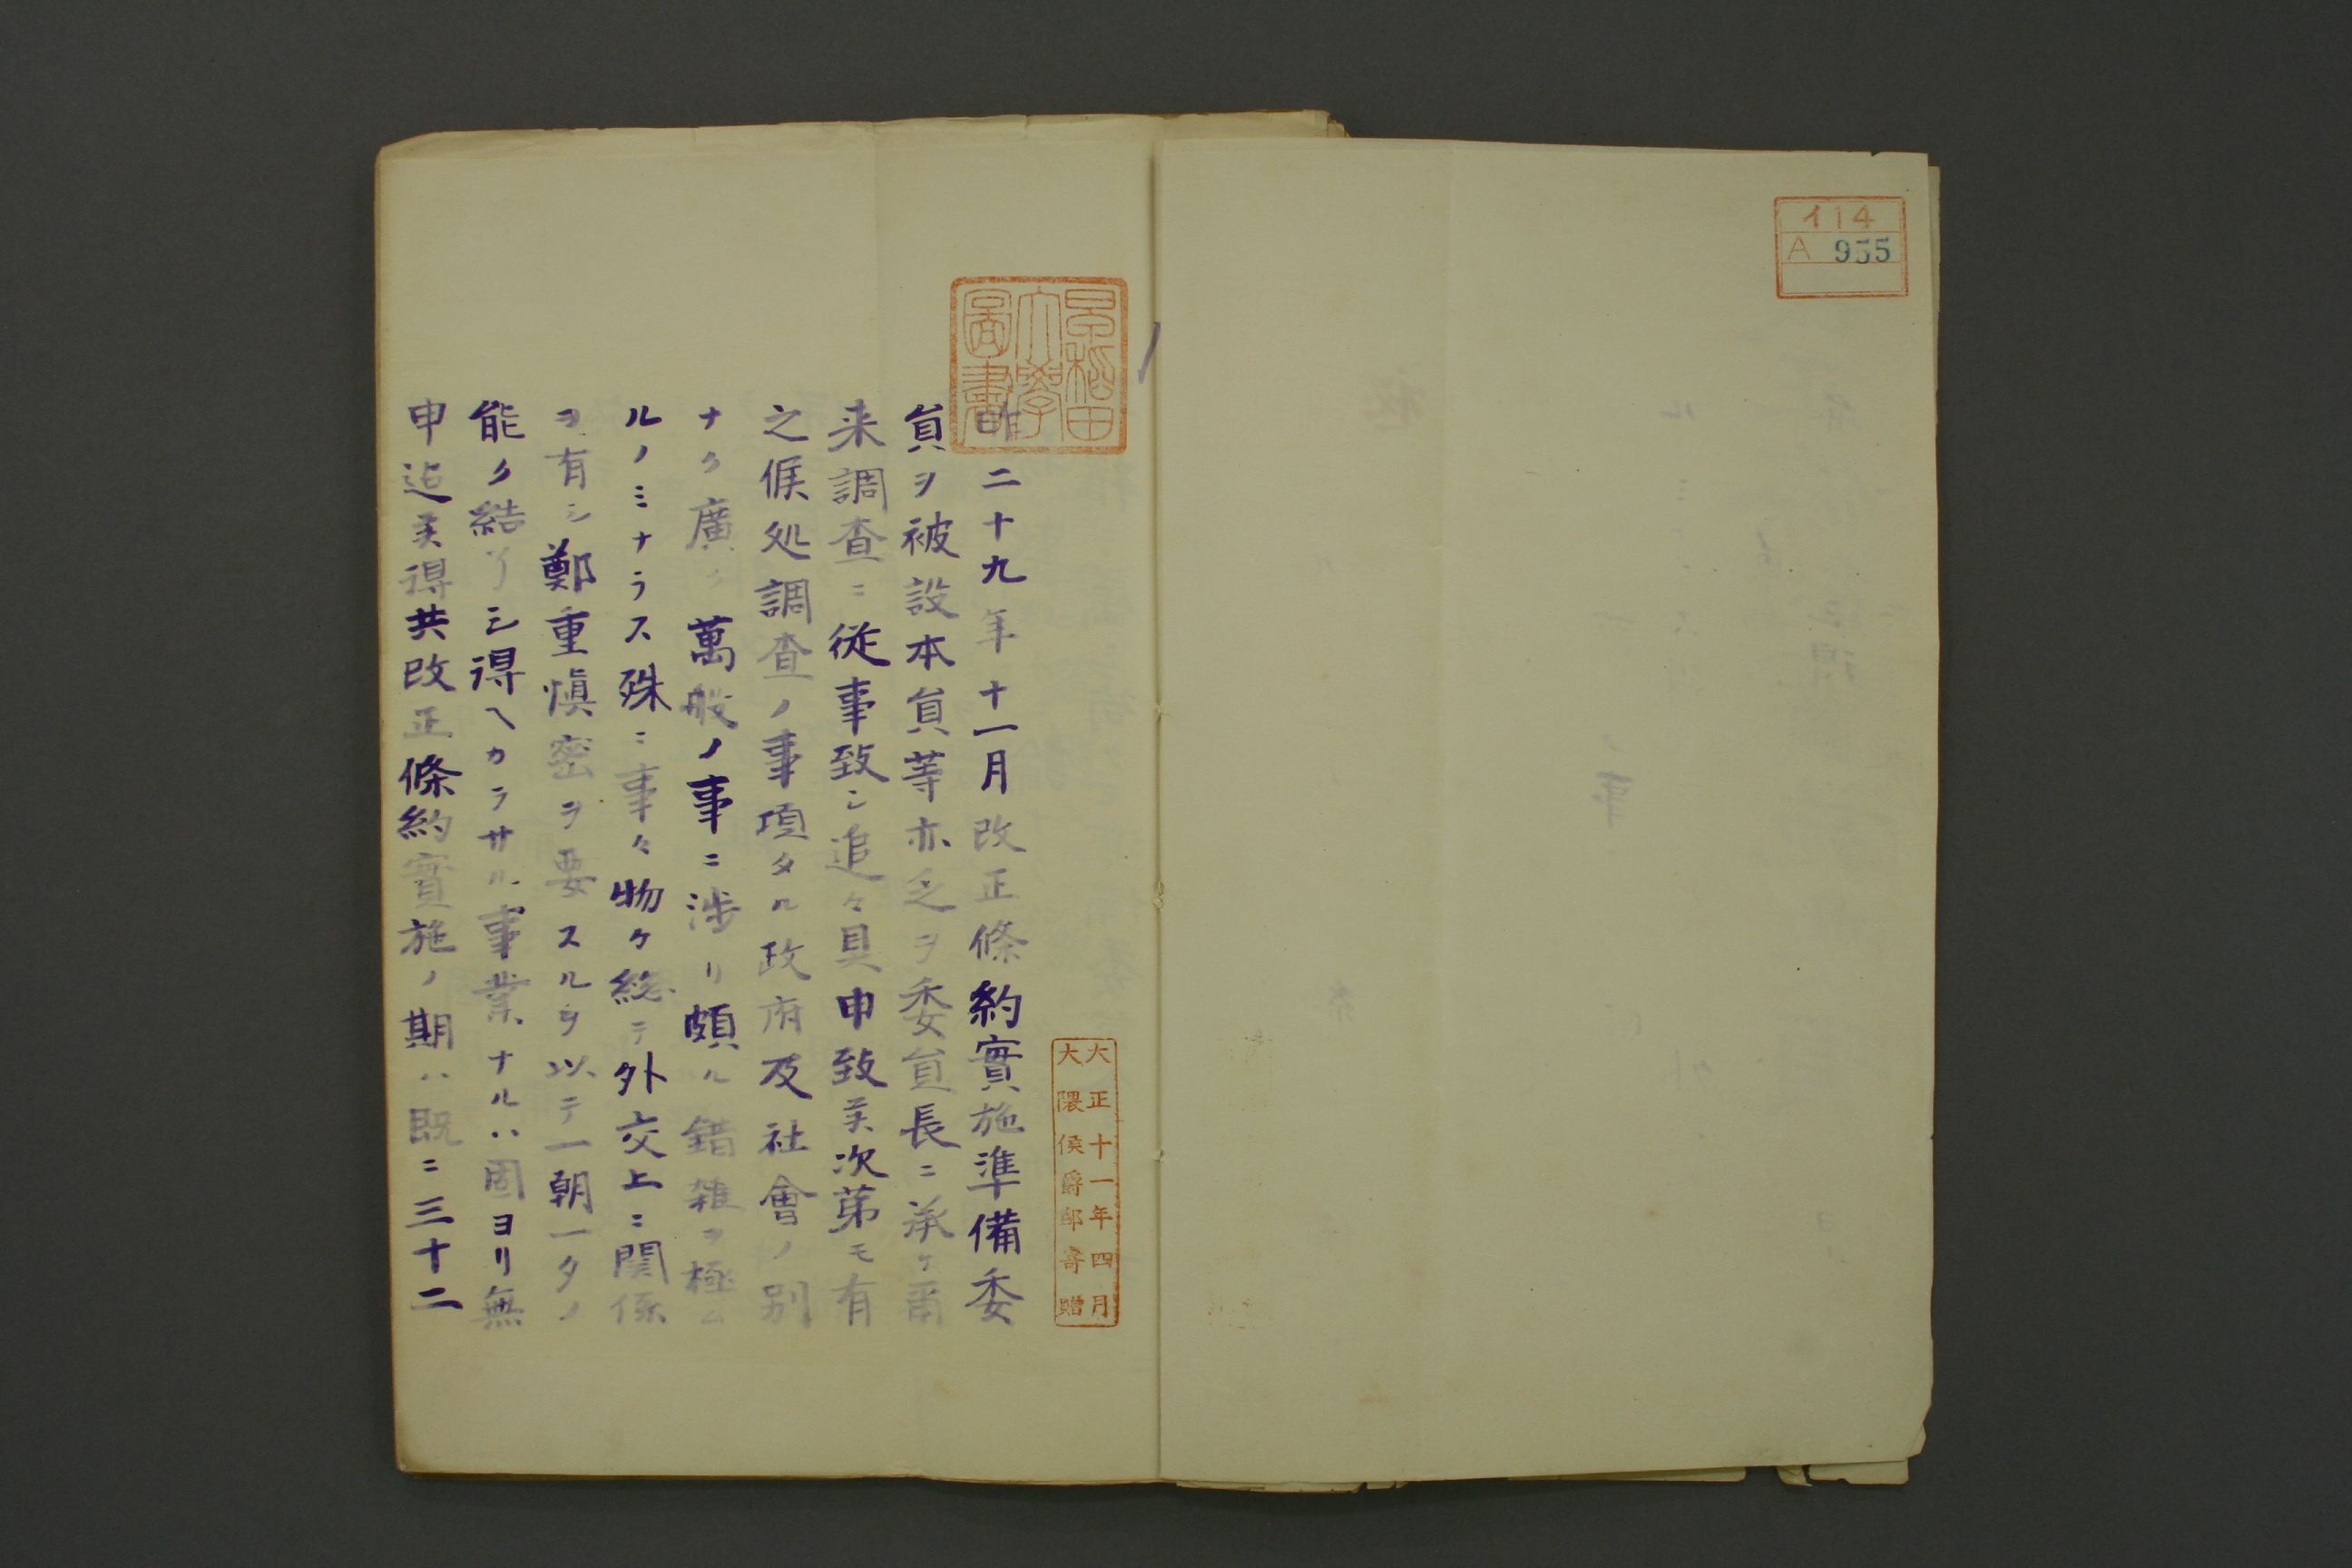 イ14
A 955
早稲田
大學
圖書
大正十一年四月
大隈侯爵邸寄贈
昨二十九年十一月改正條約實施準備委
員ヲ被設本員等亦乏ヲ委員長ニ承ケ爾
来調査ニ従事致シ追々具申致候次第モ有
之候処調査ノ事項タル政府及社會ノ別
ナク廣ク萬般ノ事ニ渉リ頗ル錯雑ヲ極ム
ルノミナラス殊ニ事々物々総テ外交上ニ関係
ヲ有シ鄭重愼密ヲ要スルヲ以テ一朝一夕ノ
能ク結了シ得ヘカラサル事業ナルハ固ヨリ無
申迄候得共改正條約實施ノ期ハ既ニ三十二